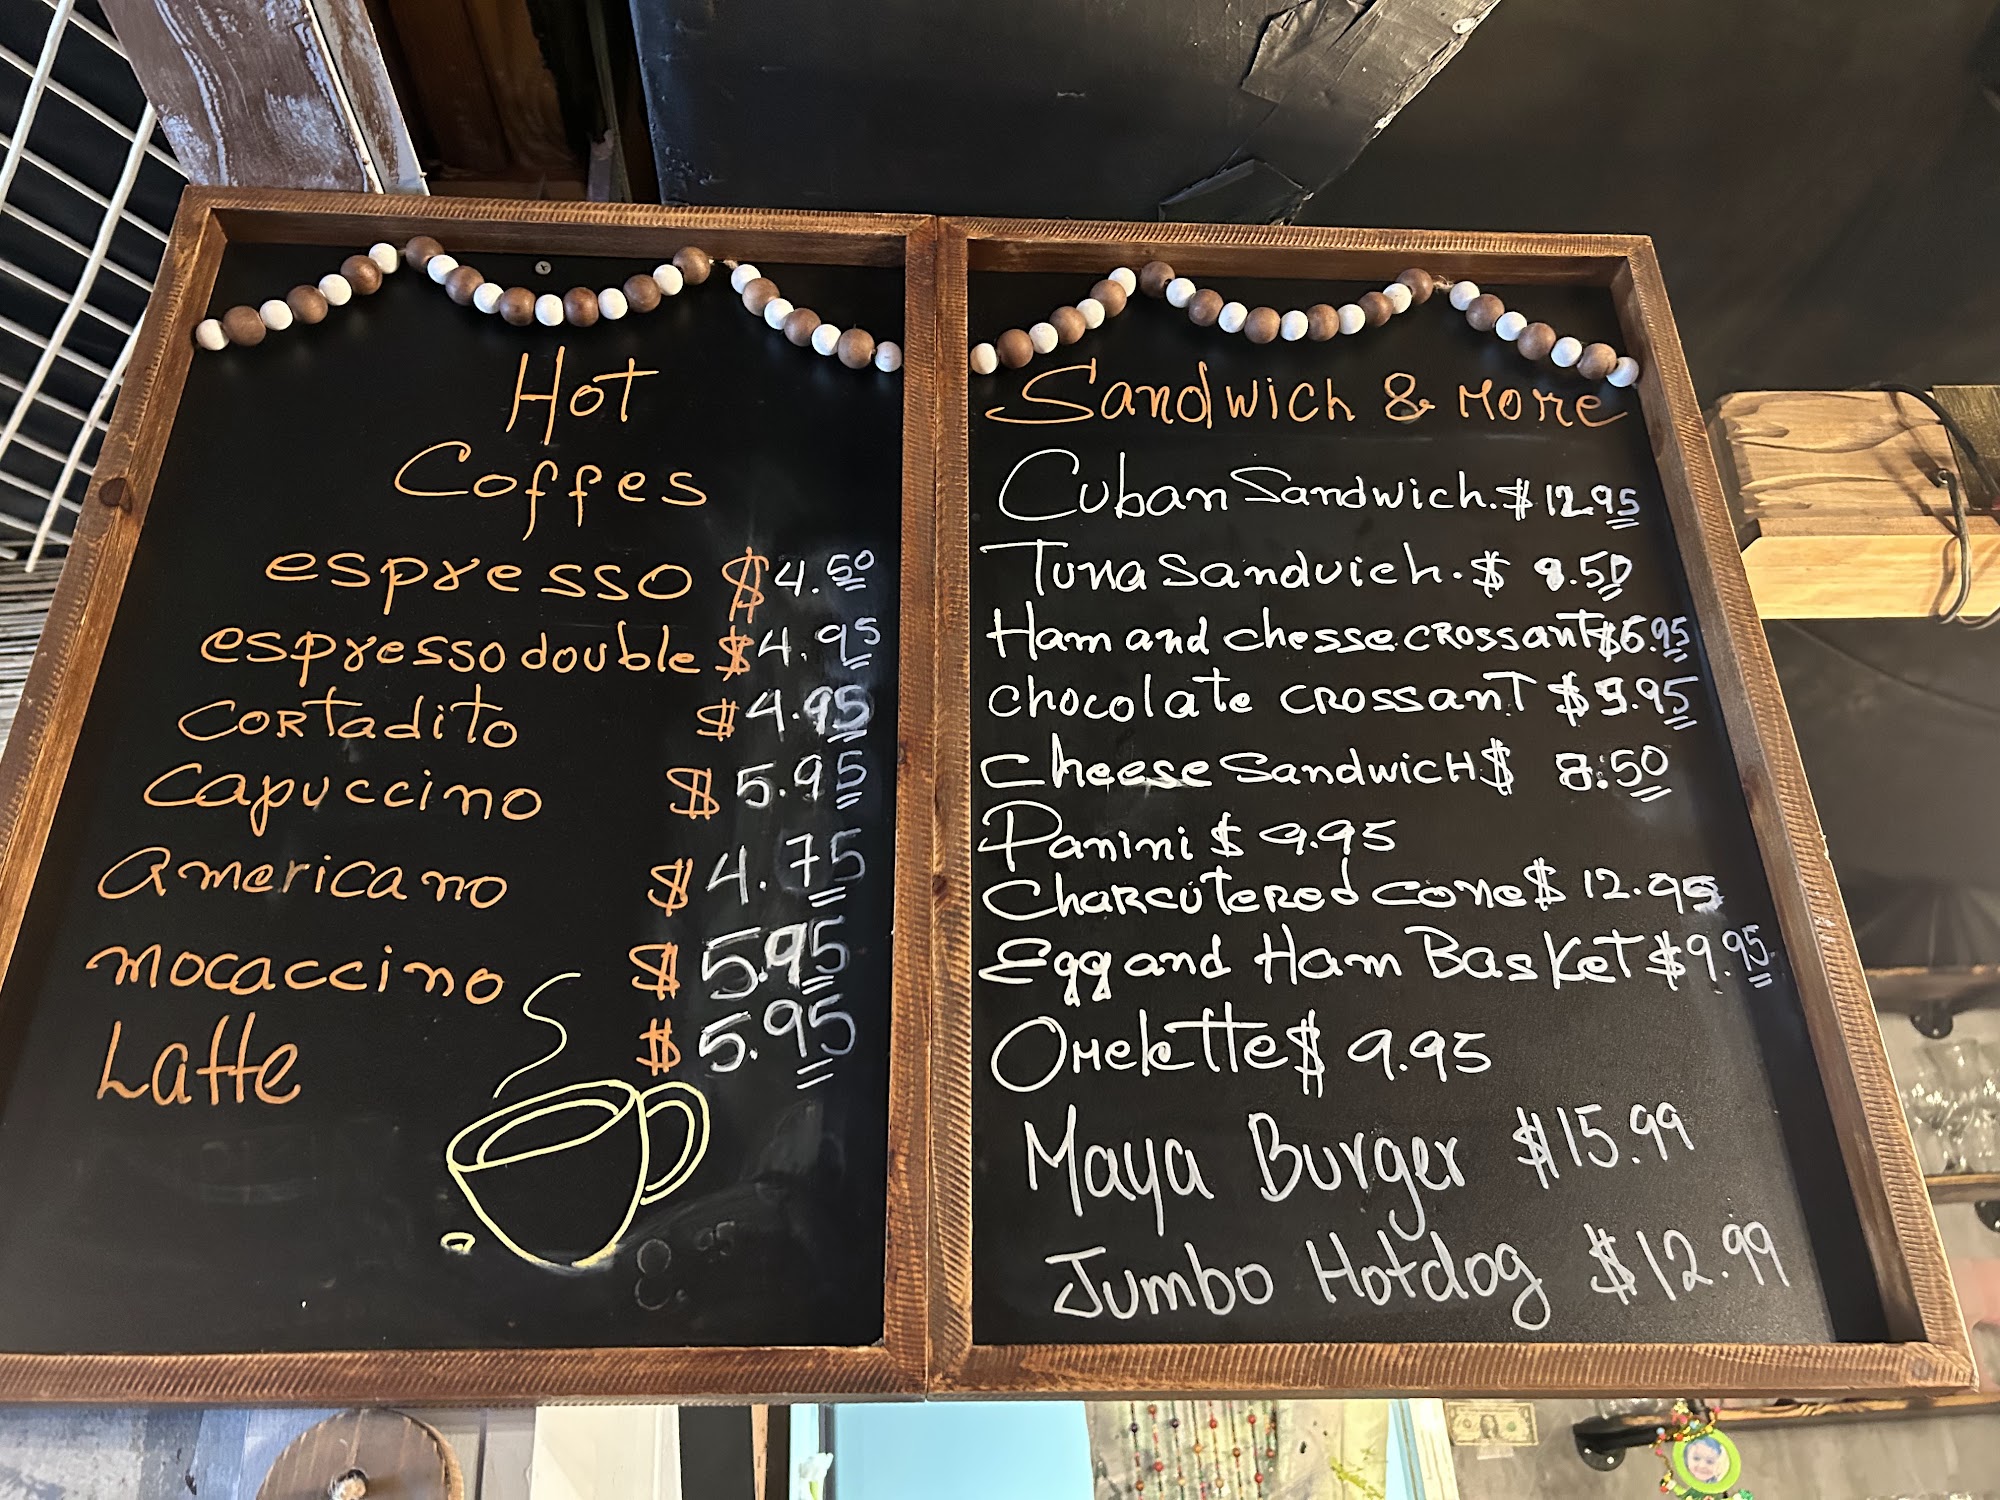 Hot
Coffes
espresso $4.50
espresso double $4.95
Cortadito $4.95
Capuccino $5.95
Americano $4.75
mocaccino $5.95
Latte $5.95
Sandwich & More
Cuban Sandwich. $12.95
Tuna Sandwich. $
Ham and chesse crossant $6.95
chocolate crossant $
cheese Sandwich $ 8.50
Panini $ 9.95
Charcutered cone $ 12.95
Egg and Ham Basket $9.95
Omelette $ 9.95
Maya Burger $15.99
Jumbo Hotdog $12.99